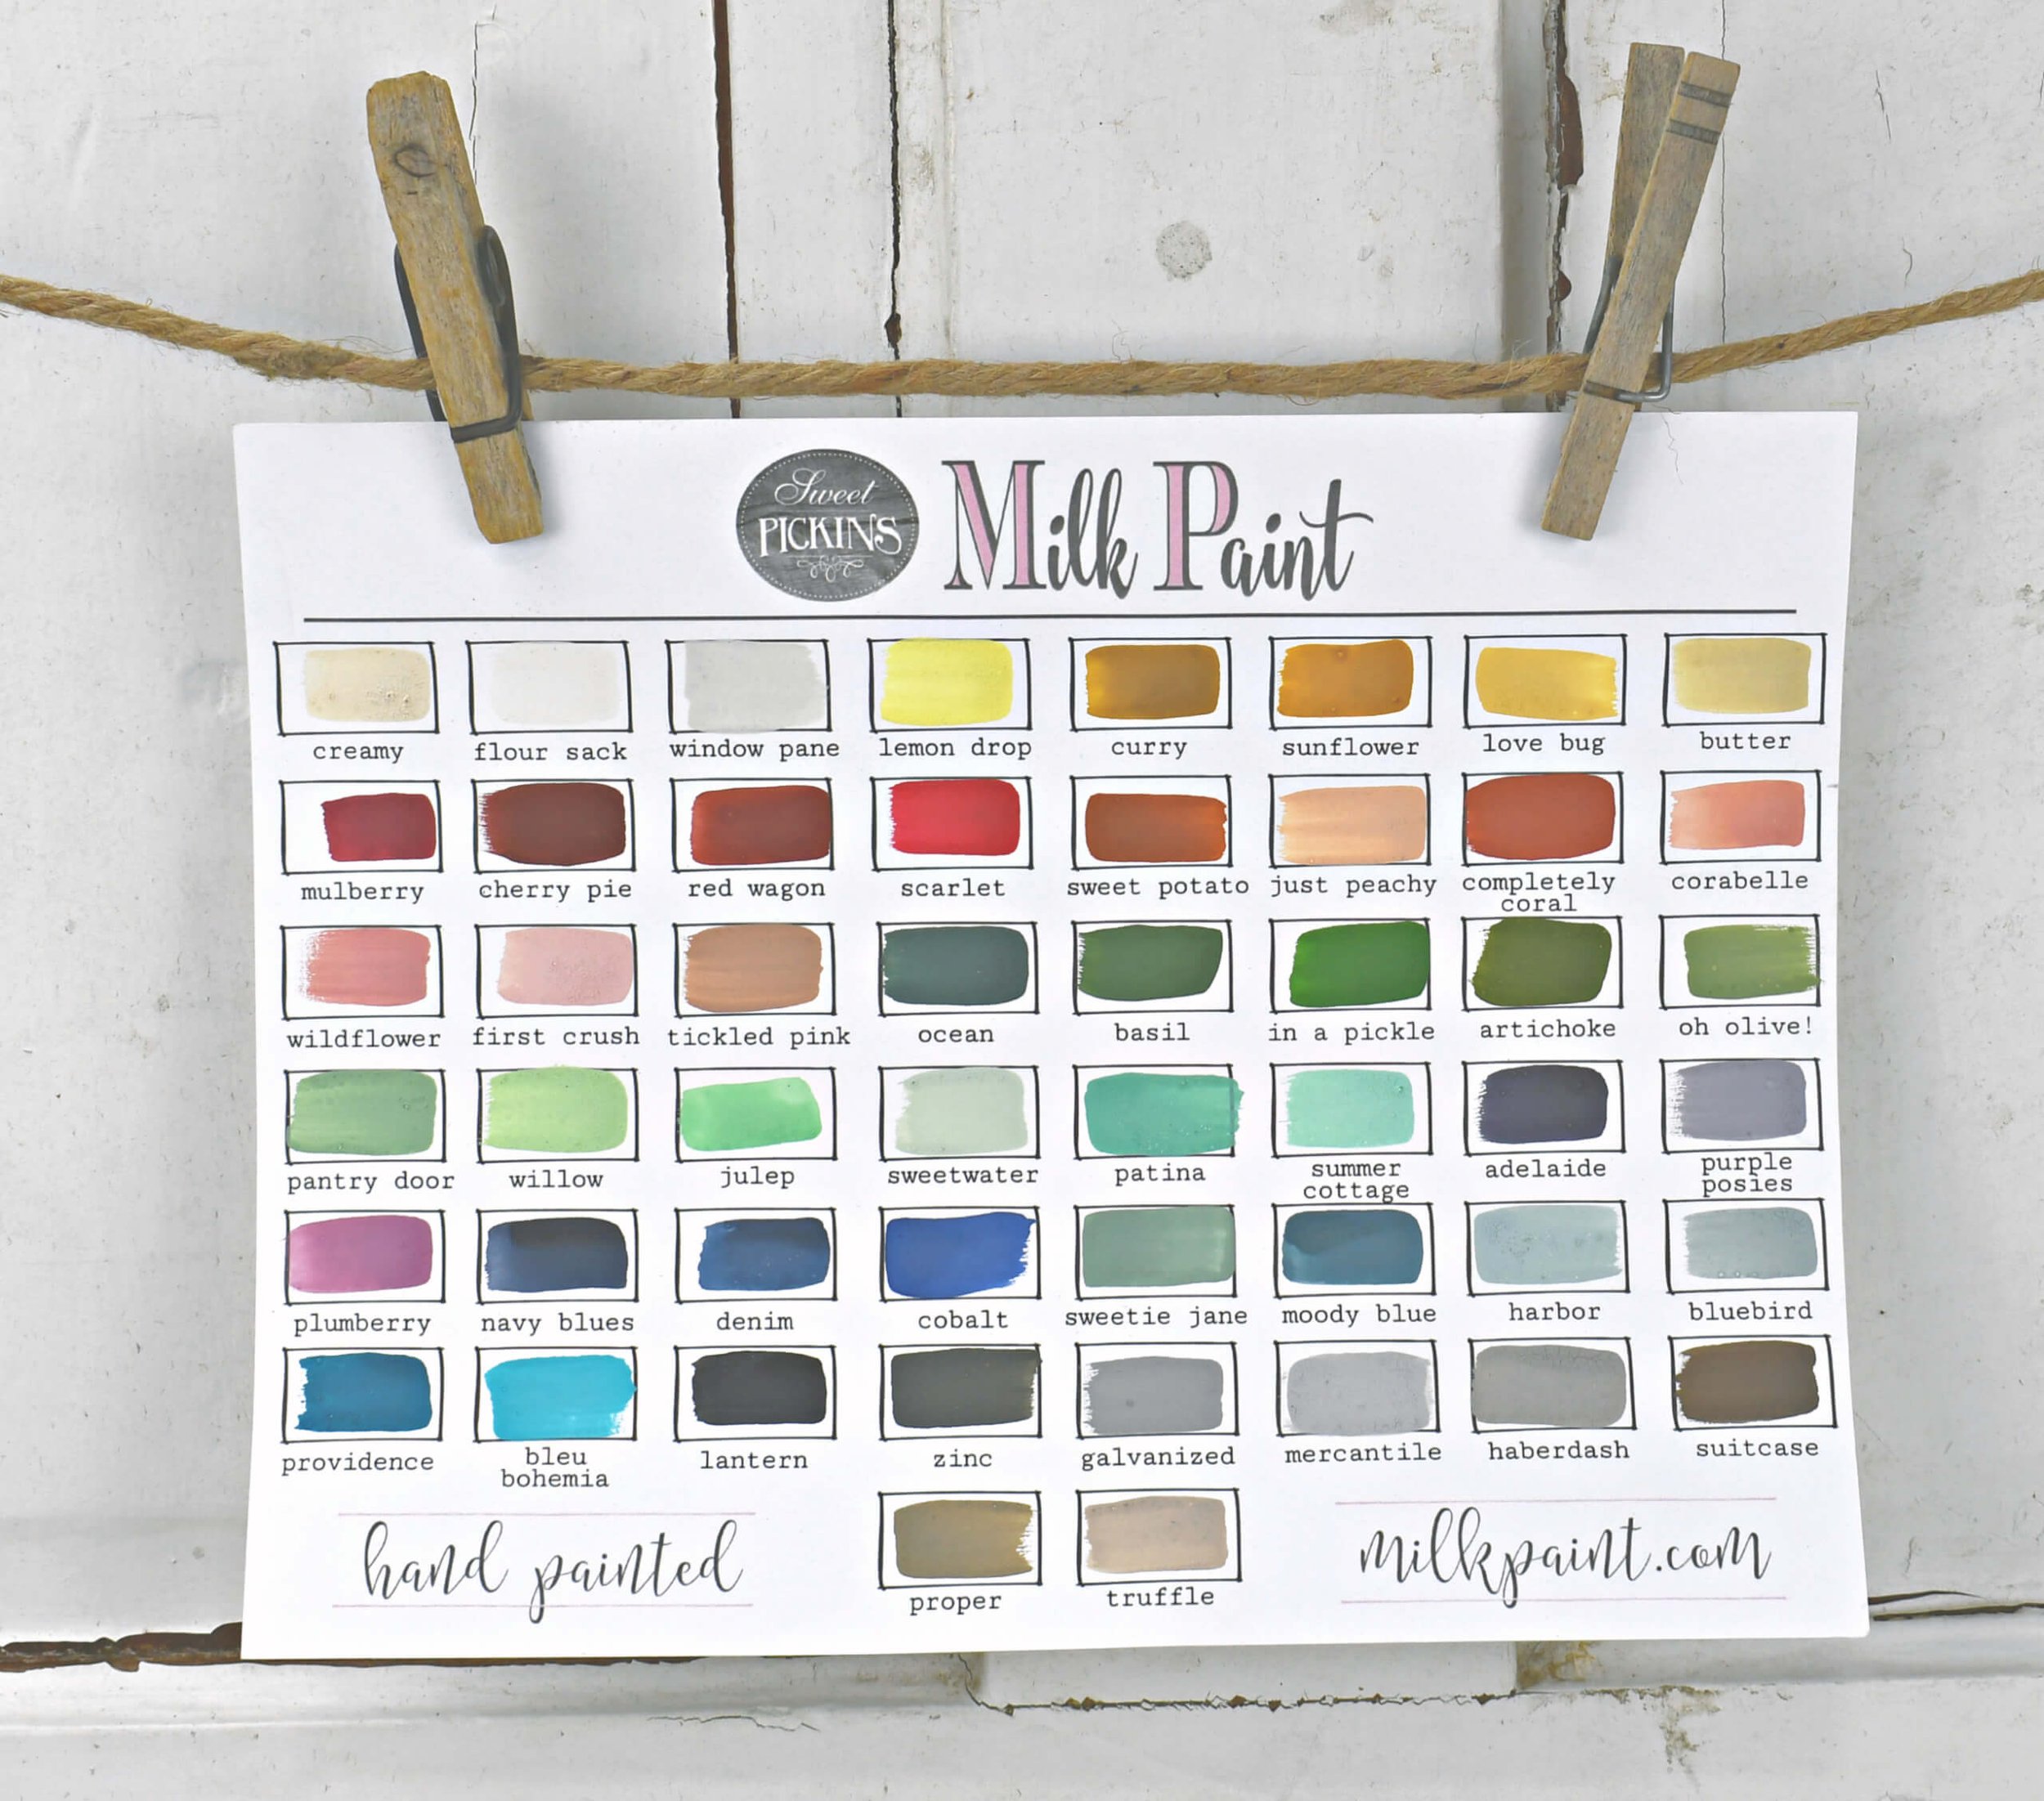 Sweet
PICKINS
Milk Paint
creamy flour sack window pane lemon drop curry sunflower love bug butter
mulberry cherry pie red wagon scarlet sweet potato just peachy completely coral corabelle
wildflower first crush tickled pink ocean basil in a pickle artichoke oh olive!
pantry door willow julep sweetwater patina summer cottage adelaide purple posies
plumberry navy blues denim cobalt sweetie jane moody blue harbor bluebird
providence bleu bohemia lantern zinc galvanized mercantile haberdash suitcase
hand painted proper truffle milkpaint.com